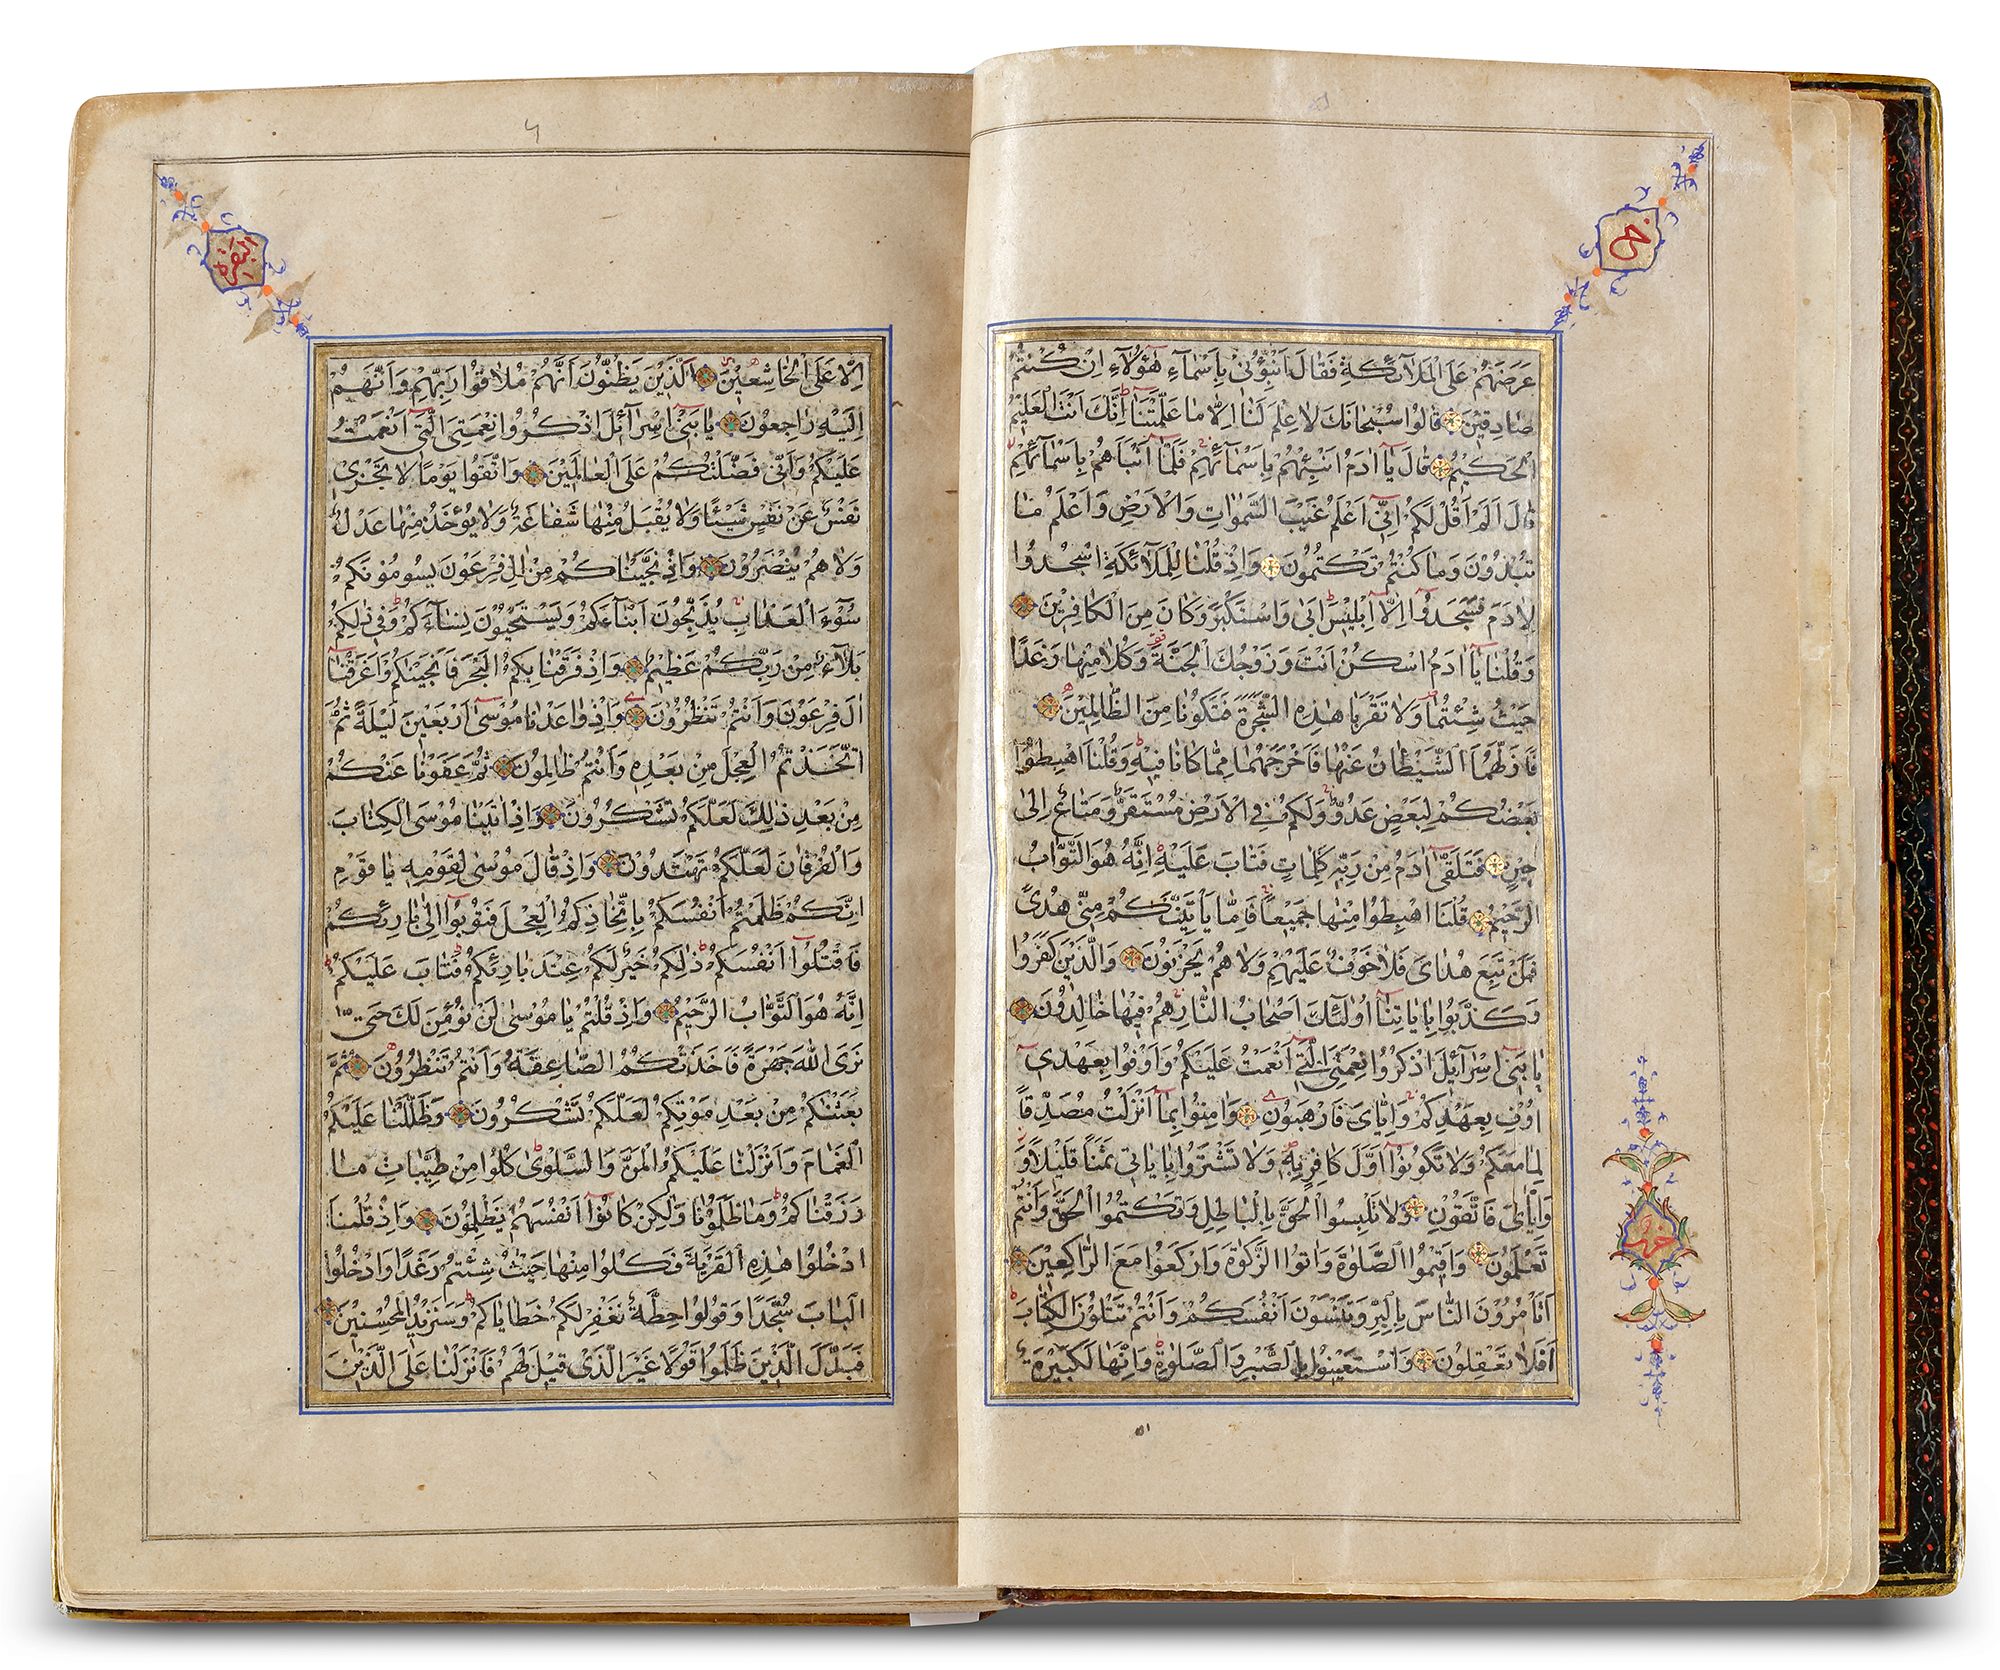 عَرَضَهُمْ عَلَى الْمَلَآئِكَةِ فَقَالَ اَنْبِؤُنٖى بِاَسْمَآءِ هٰؤُلَآءِ اِنْ كُنْتُمْ
صَادِقٖينَ قَالُوا سُبْحَانَكَ لَا عِلْمَ لَنَا اِلَّا مَا عَلَّمْتَنَا اِنَّكَ اَنْتَ الْعَلٖيمُ
الْحَكٖيمُ قَالَ يَآ اٰدَمُ اَنْبِئْهُمْ بِاَسْمَآئِهِمْ فَلَمَّآ اَنْبَاَهُمْ بِاَسْمَآئِهِمْ
قَالَ اَلَمْ اَقُلْ لَكُمْ اِنّٖىٓ اَعْلَمُ غَيْبَ السَّمٰوَاتِ وَالْاَرْضِ وَاَعْلَمُ مَا
تُبْدُونَ وَمَا كُنْتُمْ تَكْتُمُونَ وَاِذْ قُلْنَا لِلْمَلَآئِكَةِ اسْجُدُوا
لِاٰدَمَ فَسَجَدُوٓا اِلَّآ اِبْلٖيسَ اَبٰى وَاسْتَكْبَرَ وَكَانَ مِنَ الْكَافِرٖينَ
وَقُلْنَا يَآ اٰدَمُ اسْكُنْ اَنْتَ وَزَوْجُكَ الْجَنَّةَ وَكُلَا مِنْهَا رَغَدًا
حَيْثُ شِئْتُمَا وَلَا تَقْرَبَا هٰذِهِ الشَّجَرَةَ فَتَكُونَا مِنَ الظَّالِمٖينَ
فَاَزَلَّهُمَا الشَّيْطَانُ عَنْهَا فَاَخْرَجَهُمَا مِمَّا كَانَا فٖيهِ وَقُلْنَا اهْبِطُوا
بَعْضُكُمْ لِبَعْضٍ عَدُوٌّ وَلَكُمْ فِى الْاَرْضِ مُسْتَقَرٌّ وَمَتَاعٌ اِلٰى
حٖينٍ فَتَلَقّٰٓى اٰدَمُ مِنْ رَبِّهٖ كَلِمَاتٍ فَتَابَ عَلَيْهِ اِنَّهُ هُوَ التَّوَّابُ
الرَّحٖيمُ قُلْنَا اهْبِطُوا مِنْهَا جَمٖيعًا فَاِمَّا يَاْتِيَنَّكُمْ مِنّٖى هُدًى
فَمَنْ تَبِعَ هُدَاىَ فَلَا خَوْفٌ عَلَيْهِمْ وَلَا هُمْ يَحْزَنُونَ وَالَّذٖينَ كَفَرُوا
وَكَذَّبُوا بِاٰيَاتِنَآ اُولٰٓئِكَ اَصْحَابُ النَّارِ هُمْ فٖيهَا خَالِدُونَ
يَا بَنٖىٓ اِسْرَآئٖلَ اذْكُرُوا نِعْمَتِىَ الَّتٖىٓ اَنْعَمْتُ عَلَيْكُمْ وَاَوْفُوا بِعَهْدٖىٓ
اُوفِ بِعَهْدِكُمْ وَاِيَّاىَ فَارْهَبُونِ وَاٰمِنُوا بِمَآ اَنْزَلْتُ مُصَدِّقًا
لِمَا مَعَكُمْ وَلَا تَكُونُوٓا اَوَّلَ كَافِرٍ بِهٖ وَلَا تَشْتَرُوا بِاٰيَاتٖى ثَمَنًا قَلٖيلًا وَ
وَاِيَّاىَ فَاتَّقُونِ وَلَا تَلْبِسُوا الْحَقَّ بِالْبَاطِلِ وَتَكْتُمُوا الْحَقَّ وَاَنْتُمْ
تَعْلَمُونَ وَاَقٖيمُوا الصَّلٰوةَ وَاٰتُوا الزَّكٰوةَ وَارْكَعُوا مَعَ الرَّاكِعٖينَ
اَتَاْمُرُونَ النَّاسَ بِالْبِرِّ وَتَنْسَوْنَ اَنْفُسَكُمْ وَاَنْتُمْ تَتْلُونَ الْكِتَابَ
اَفَلَا تَعْقِلُونَ وَاسْتَعٖينُوا بِالصَّبْرِ وَالصَّلٰوةِ وَاِنَّهَا لَكَبٖيرَةٌ
حزب
البقرة
اِلَّا عَلَى الْخَاشِعٖينَ اَلَّذٖينَ يَظُنُّونَ اَنَّهُمْ مُلَاقُوا رَبِّهِمْ وَاَنَّهُمْ
اِلَيْهِ رَاجِعُونَ يَا بَنٖىٓ اِسْرَآئٖلَ اذْكُرُوا نِعْمَتِىَ الَّتٖىٓ اَنْعَمْتُ
عَلَيْكُمْ وَاَنّٖى فَضَّلْتُكُمْ عَلَى الْعَالَمٖينَ وَاتَّقُوا يَوْمًا لَا تَجْزٖى
نَفْسٌ عَنْ نَفْسٍ شَيْئًا وَلَا يُقْبَلُ مِنْهَا شَفَاعَةٌ وَلَا يُؤْخَذُ مِنْهَا عَدْلٌ
وَلَا هُمْ يُنْصَرُونَ وَاِذْ نَجَّيْنَاكُمْ مِنْ اٰلِ فِرْعَوْنَ يَسُومُونَكُمْ
سُوٓءَ الْعَذَابِ يُذَبِّحُونَ اَبْنَآءَكُمْ وَيَسْتَحْيُونَ نِسَآءَكُمْ وَفٖى ذٰلِكُمْ
بَلَآءٌ مِنْ رَبِّكُمْ عَظٖيمٌ وَاِذْ فَرَقْنَا بِكُمُ الْبَحْرَ فَاَنْجَيْنَاكُمْ وَاَغْرَقْنَآ
اٰلَ فِرْعَوْنَ وَاَنْتُمْ تَنْظُرُونَ وَاِذْ وَاعَدْنَا مُوسٰٓى اَرْبَعٖينَ لَيْلَةً ثُمَّ
اتَّخَذْتُمُ الْعِجْلَ مِنْ بَعْدِهٖ وَاَنْتُمْ ظَالِمُونَ ثُمَّ عَفَوْنَا عَنْكُمْ
مِنْ بَعْدِ ذٰلِكَ لَعَلَّكُمْ تَشْكُرُونَ وَاِذْ اٰتَيْنَا مُوسَى الْكِتَابَ
وَالْفُرْقَانَ لَعَلَّكُمْ تَهْتَدُونَ وَاِذْ قَالَ مُوسٰى لِقَوْمِهٖ يَا قَوْمِ
اِنَّكُمْ ظَلَمْتُمْ اَنْفُسَكُمْ بِاتِّخَاذِكُمُ الْعِجْلَ فَتُوبُوٓا اِلٰى بَارِئِكُمْ
فَاقْتُلُوٓا اَنْفُسَكُمْ ذٰلِكُمْ خَيْرٌ لَكُمْ عِنْدَ بَارِئِكُمْ فَتَابَ عَلَيْكُمْ
اِنَّهُ هُوَ التَّوَّابُ الرَّحٖيمُ وَاِذْ قُلْتُمْ يَا مُوسٰى لَنْ نُؤْمِنَ لَكَ حَتّٰى
نَرَى اللّٰهَ جَهْرَةً فَاَخَذَتْكُمُ الصَّاعِقَةُ وَاَنْتُمْ تَنْظُرُونَ ثُمَّ
بَعَثْنَاكُمْ مِنْ بَعْدِ مَوْتِكُمْ لَعَلَّكُمْ تَشْكُرُونَ وَظَلَّلْنَا عَلَيْكُمُ
الْغَمَامَ وَاَنْزَلْنَا عَلَيْكُمُ الْمَنَّ وَالسَّلْوٰى كُلُوا مِنْ طَيِّبَاتِ مَا
رَزَقْنَاكُمْ وَمَا ظَلَمُونَا وَلٰكِنْ كَانُوٓا اَنْفُسَهُمْ يَظْلِمُونَ وَاِذْ قُلْنَا
ادْخُلُوا هٰذِهِ الْقَرْيَةَ فَكُلُوا مِنْهَا حَيْثُ شِئْتُمْ رَغَدًا وَادْخُلُوا
الْبَابَ سُجَّدًا وَقُولُوا حِطَّةٌ نَغْفِرْ لَكُمْ خَطَايَاكُمْ وَسَنَزٖيدُ الْمُحْسِنٖينَ
فَبَدَّلَ الَّذٖينَ ظَلَمُوا قَوْلًا غَيْرَ الَّذٖى قٖيلَ لَهُمْ فَاَنْزَلْنَا عَلَى الَّذٖينَ